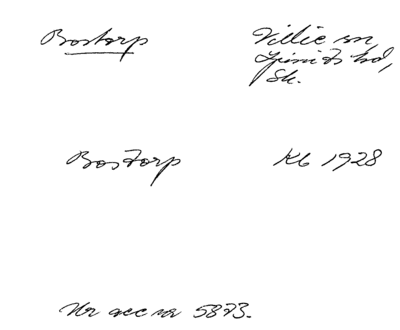 Bostorp Villie sn
Ljunits hd,
Sk.
Bostorp Kb 1928
Ur acc nr 5873.